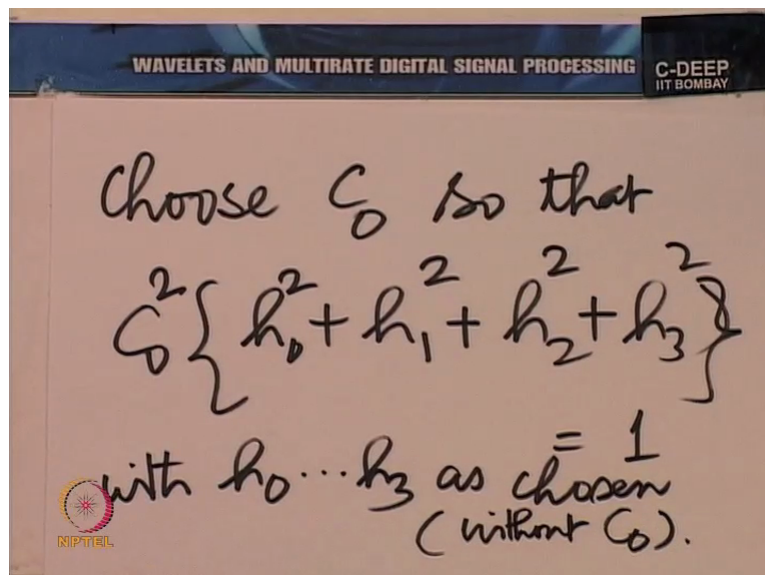 WAVELETS AND MULTIRATE DIGITAL SIGNAL PROCESSING
C-DEEP
IIT BOMBAY
Choose C₀ so that
C₀² { h₀² + h₁² + h₂² + h₃² }
= 1
with h₀ ... h₃ as chosen
(without C₀).
NPTEL